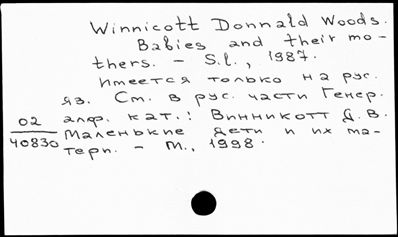 Winnicott Donnald Woods.
Babies and their mo-
thers. - S.l., 1987.
Имеется только на рус.
яз. См. в рус. части Генер.
алф. кат.: Винникотт Д. В.
Маленькие дети и их ма-
тери. - М., 1998.
02
40830